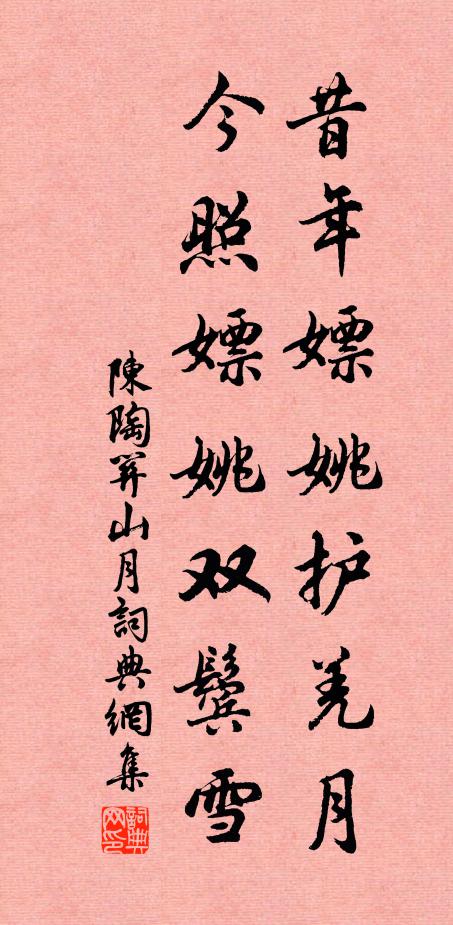 昔年嫖姚护羌月
今照嫖姚双鬓雪
陳陶関山月詞典網集
詞典网印